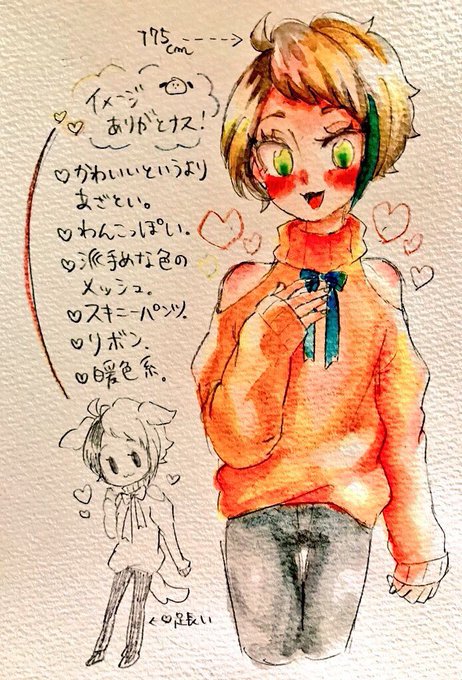 175cm
イメージ
ありがとナス!
♡かわいいというより
あざとい。
♡わんこっぽい。
♡派手めな色の
メッシュ。
♡スキニーパンツ。
♡リボン。
♡暖色系。
←♡足長い